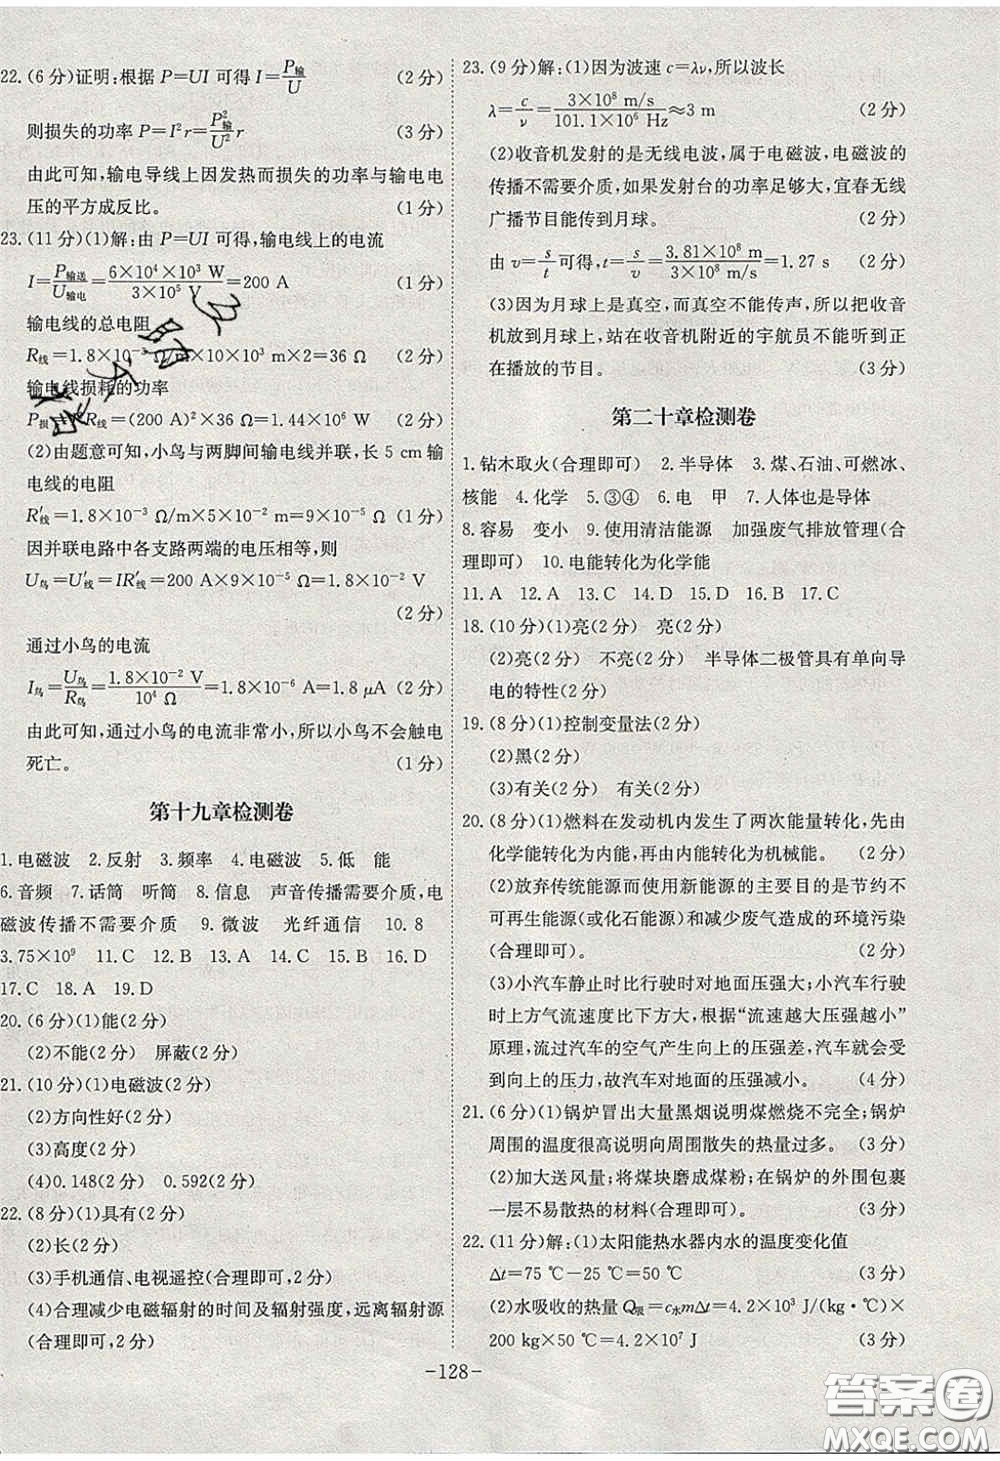 22.(6分)证明:根据 P=UI 可得 I=P输/U (2分)
则损失的功率 P=I²r=P²输/U² r (3分)
由此可知,输电导线上因发热而损失的功率与输电电
压的平方成反比。 (1分)
23.(11分)(1)解:由 P=UI 可得,输电线上的电流
I=P输送/U输电=6×10⁴×10³ W/3×10⁵ V=200 A (1分)
输电线的总电阻
R线=1.8×10⁻³ Ω/m×10×10³ m×2=36 Ω (2分)
输电线损耗的功率
P损=I²R线=(200 A)²×36 Ω=1.44×10⁶ W (2分)
(2)由题意可知,小鸟与两脚间输电线并联,长 5 cm 输
电线的电阻
R′线=1.8×10⁻³ Ω/m×5×10⁻² m=9×10⁻⁵ Ω (1分)
因并联电路中各支路两端的电压相等,则
U鸟=U′线=IR′线=200 A×9×10⁻⁵ Ω=1.8×10⁻² V
(2分)
通过小鸟的电流
I鸟=U鸟/R鸟=1.8×10⁻² V/10⁴ Ω=1.8×10⁻⁶ A=1.8 μA (2分)
由此可知,通过小鸟的电流非常小,所以小鸟不会触电
死亡。 (1分)
第十九章检测卷
1.电磁波 2.反射 3.频率 4.电磁波 5.低 能
6.音频 7.话筒 听筒 8.信息 声音传播需要介质,电
磁波传播不需要介质 9.微波 光纤通信 10.8
3.75×10⁹ 11.C 12.B 13.A 14.D 15.B 16.C
17.C 18.A 19.D
20.(6分)(1)能(2分)
(2)不能(2分) 屏蔽(2分)
21.(10分)(1)电磁波(2分)
(2)方向性好(2分)
(3)高度(2分)
(4)0.148(2分) 0.592(2分)
22.(8分)(1)具有(2分)
(2)长(2分)
(3)手机通信、电视遥控(合理即可,2分)
(4)合理减少电磁辐射的时间及辐射强度,远离辐射源
(合理即可,2分)
23.(9分)解:(1)因为波速 c=λν,所以波长
λ=c/ν=3×10⁸ m/s/101.1×10⁶ Hz≈3 m (2分)
(2)收音机发射的是无线电波,属于电磁波,电磁波的
传播不需要介质,如果发射台的功率足够大,宜春无线
广播节目能传到月球。 (2分)
由 v=s/t 可得,t=s/v=3.81×10⁸ m/3×10⁸ m/s=1.27 s (2分)
(3)因为月球上是真空,而真空不能传声,所以把收音
机放到月球上,站在收音机附近的宇航员不能听到正
在播放的节目。 (3分)
第二十章检测卷
1.钻木取火(合理即可) 2.半导体 3.煤、石油、可燃冰、
核能 4.化学 5.③④ 6.电 甲 7.人体也是导体
8.容易 变小 9.使用清洁能源 加强废气排放管理(合
理即可) 10.电能转化为化学能
11.A 12.A 13.C 14.D 15.D 16.B 17.C
18.(10分)(1)亮(2分) 亮(2分)
(2)亮(2分) 不亮(2分) 半导体二极管具有单向导
电的特性(2分)
19.(8分)(1)控制变量法(2分)
(2)黑(2分)
(3)有关(2分) 有关(2分)
20.(8分)(1)燃料在发动机内发生了两次能量转化,先由
化学能转化为内能,再由内能转化为机械能。 (2分)
(2)放弃传统能源而使用新能源的主要目的是节约不
可再生能源(或化石能源)和减少废气造成的环境污染
(合理即可)。 (2分)
(3)小汽车静止时比行驶时对地面压强大;小汽车行驶
时上方气流速度比下方大,根据“流速越大压强越小”
原理,流过汽车的空气产生向上的压强差,汽车就会受
到向上的压力,故汽车对地面的压强减小。 (4分)
21.(6分)(1)锅炉冒出大量黑烟说明煤燃烧不完全;锅炉
周围的温度很高说明向周围散失的热量过多。 (3分)
(2)加大送风量;将煤块磨成煤粉;在锅炉的外围包裹
一层不易散热的材料(合理即可)。 (3分)
22.(11分)解:(1)太阳能热水器内水的温度变化值
Δt=75 ℃-25 ℃=50 ℃ (3分)
(2)水吸收的热量 Q吸=c水mΔt=4.2×10³ J/(kg·℃)×
200 kg×50 ℃=4.2×10⁷ J (3分)
-128-
答案卷
MXQE.COM